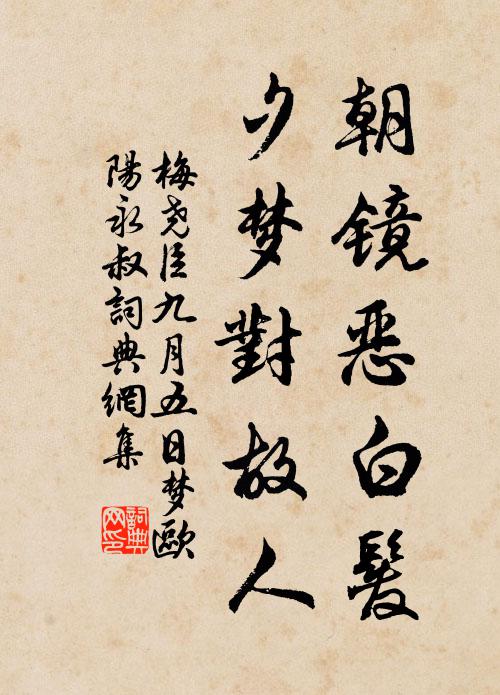 朝镜恶白髮
夕梦對故人
梅尧臣九月五日梦歐
陽永叔詞典網集
詞典
网印